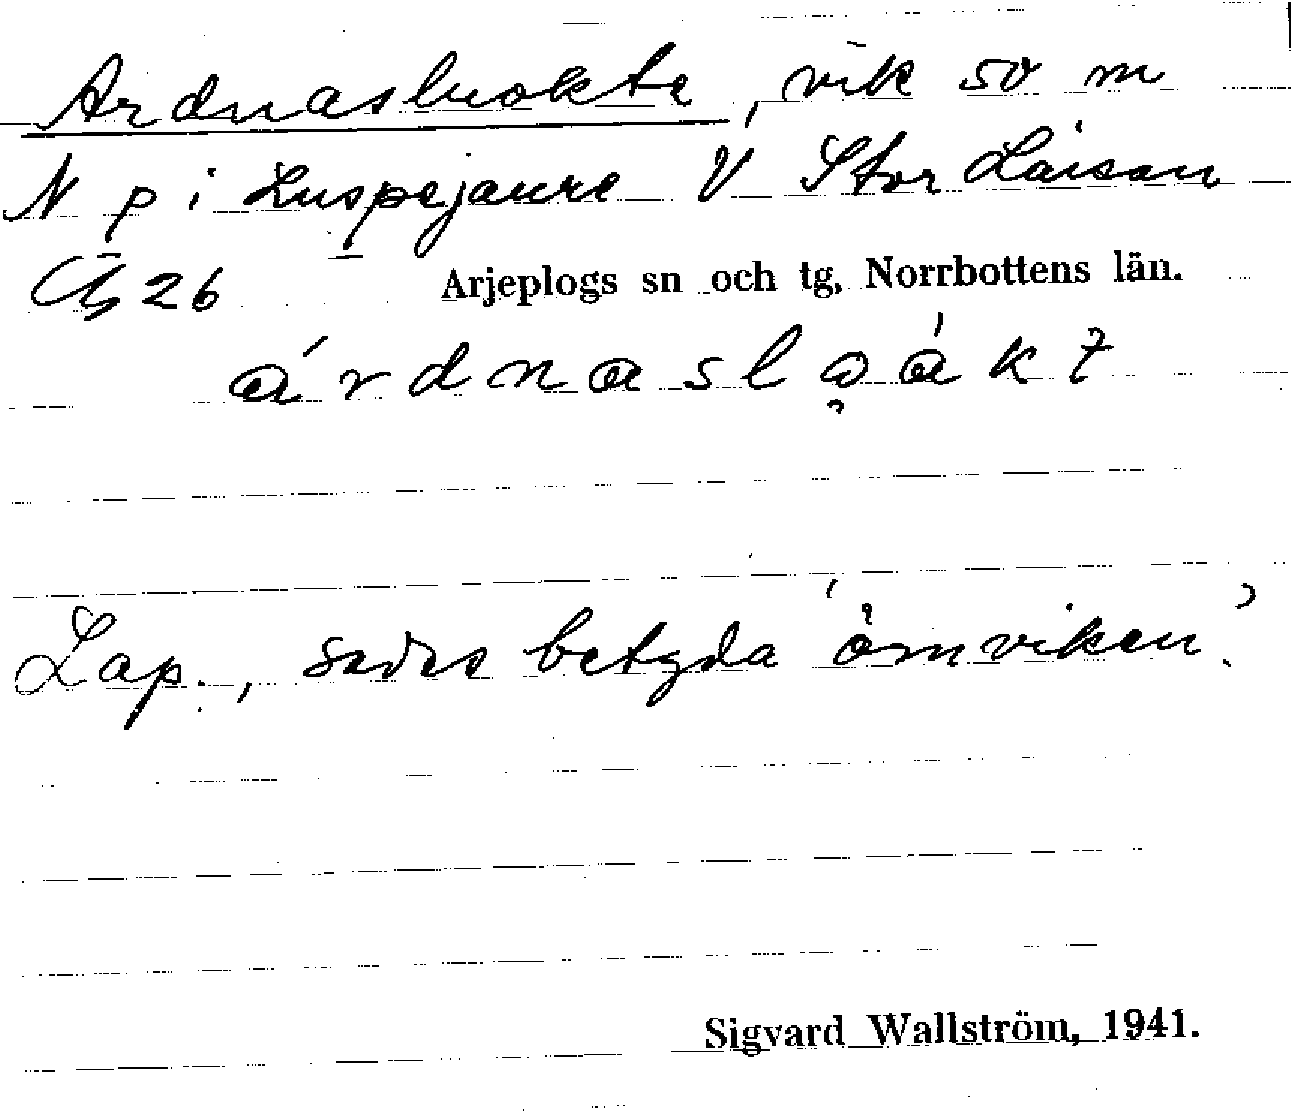 Ardnasluokte, vik 50 m
N p i Luspejaure V Stor Laisan
26 Arjeplogs sn och tg, Norrbottens län.
Lap., sades betyda 'örnviken'.
Sigvard Wallström, 1941.